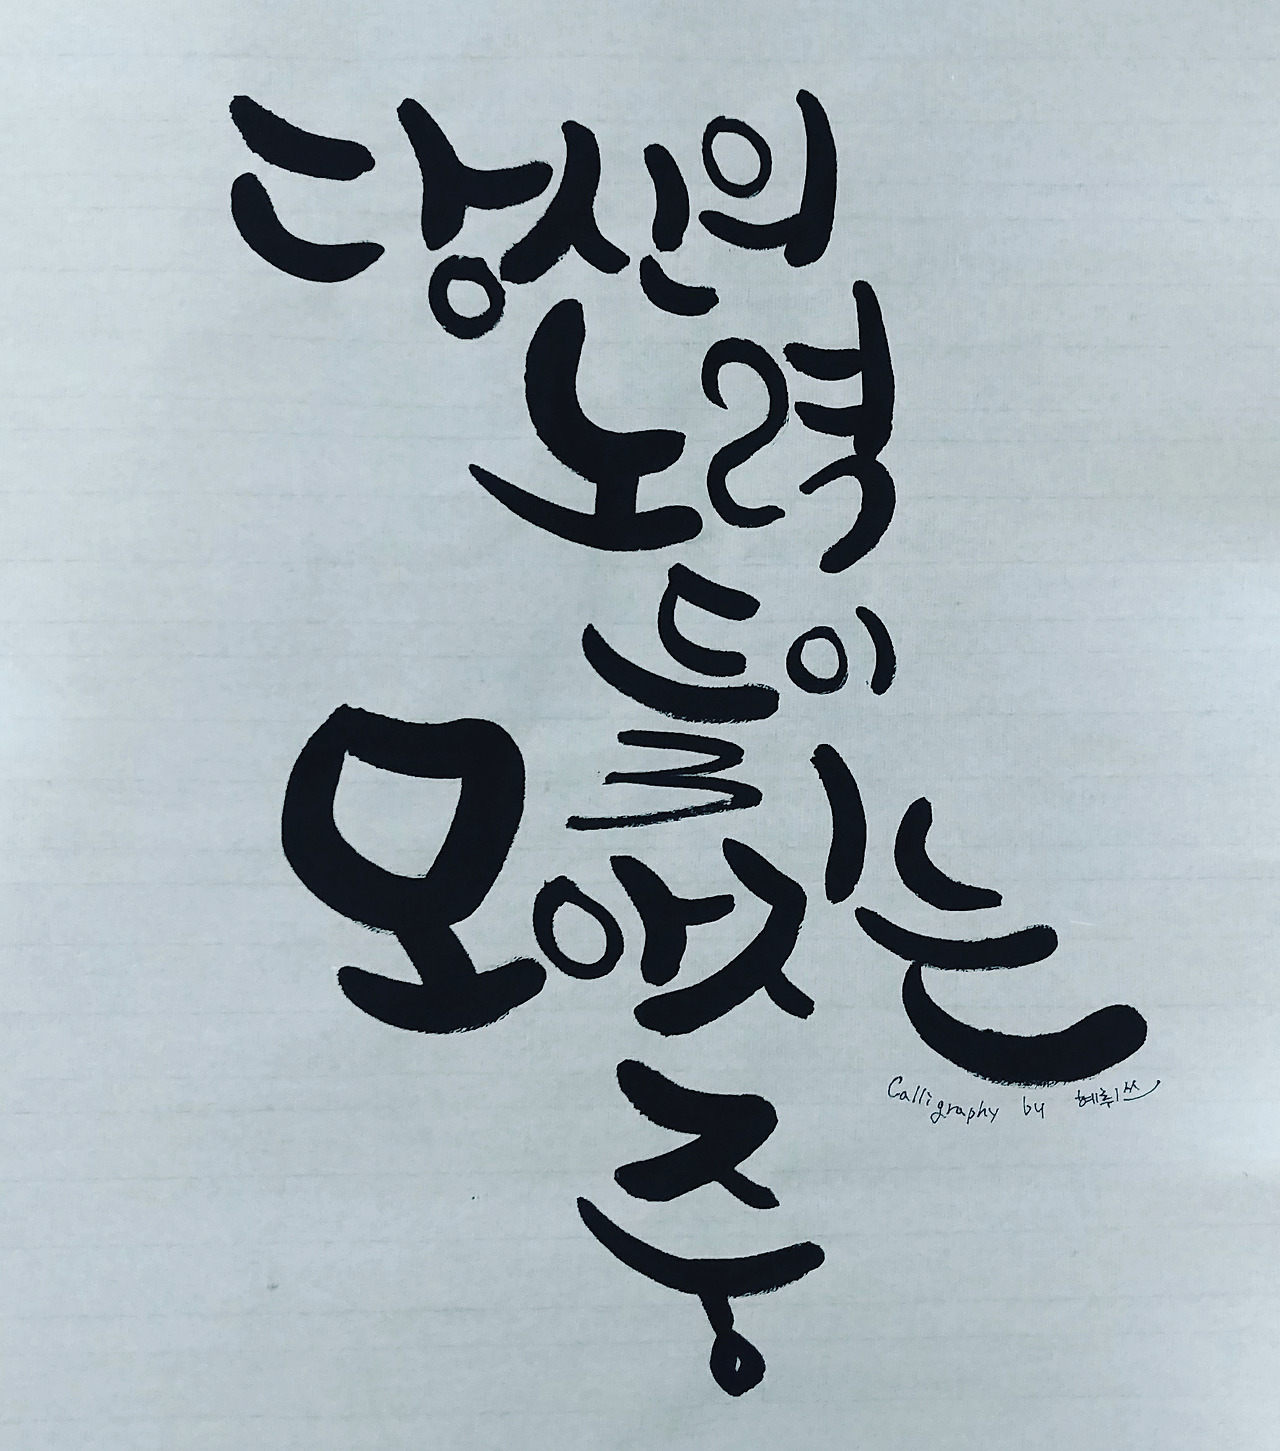 당신의
노력
들이
모아지는
중
Calligraphy by 혜휘쓰